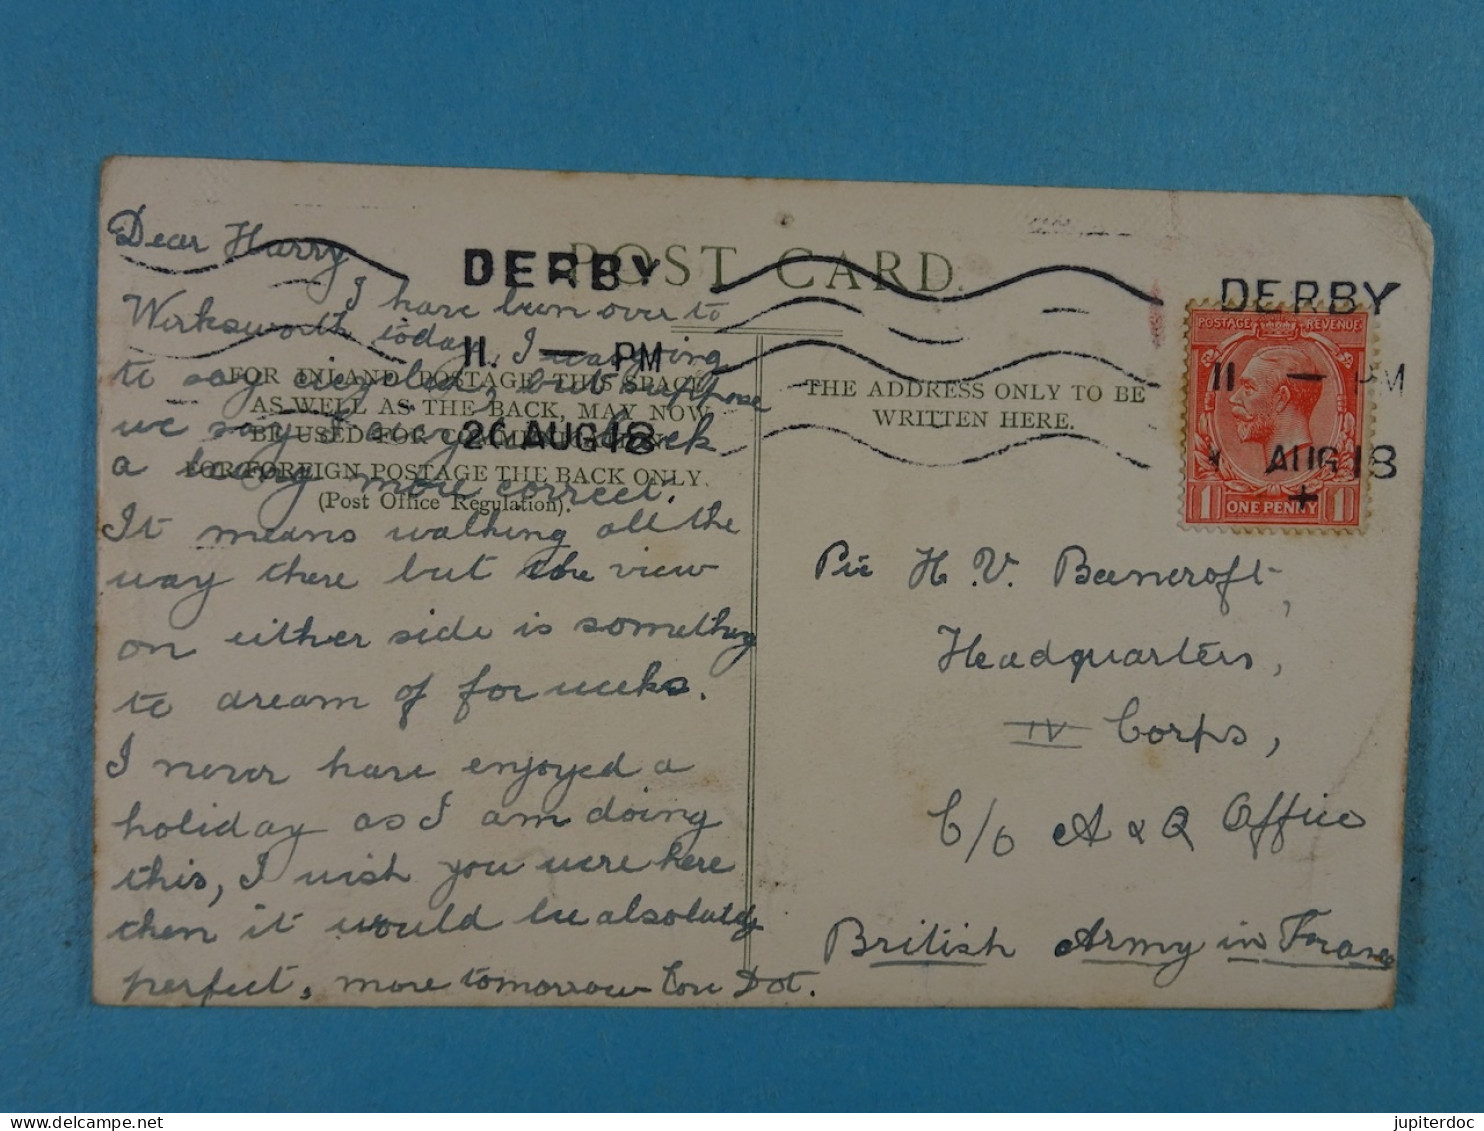 Dear Harry
I have been over to
Wirksworth today, I was going
to say cycled, but suppose
we say I carry back
a being more correct.
It means walking all the
way there but the view
on either side is something
to dream of for weeks.
I never have enjoyed a
holiday as I am doing
this, I wish you were here
then it would be absolutely
perfect, more tomorrow Dot.
POST CARD.
FOR INLAND POSTAGE THIS SPACE,
AS WELL AS THE BACK, MAY NOW
BE USED FOR COMMUNICATION.
FOR FOREIGN POSTAGE THE BACK ONLY.
(Post Office Regulation).
DERBY
11. — PM
26 AUG 18
THE ADDRESS ONLY TO BE
WRITTEN HERE.
DERBY
11 — PM
AUG 18
+
POSTAGE REVENUE
1 ONE PENNY 1
Pte H. V. Bancroft,
Headquarters,
IV Corps,
C/o A & Q Office
British Army in France
jupiterdoc